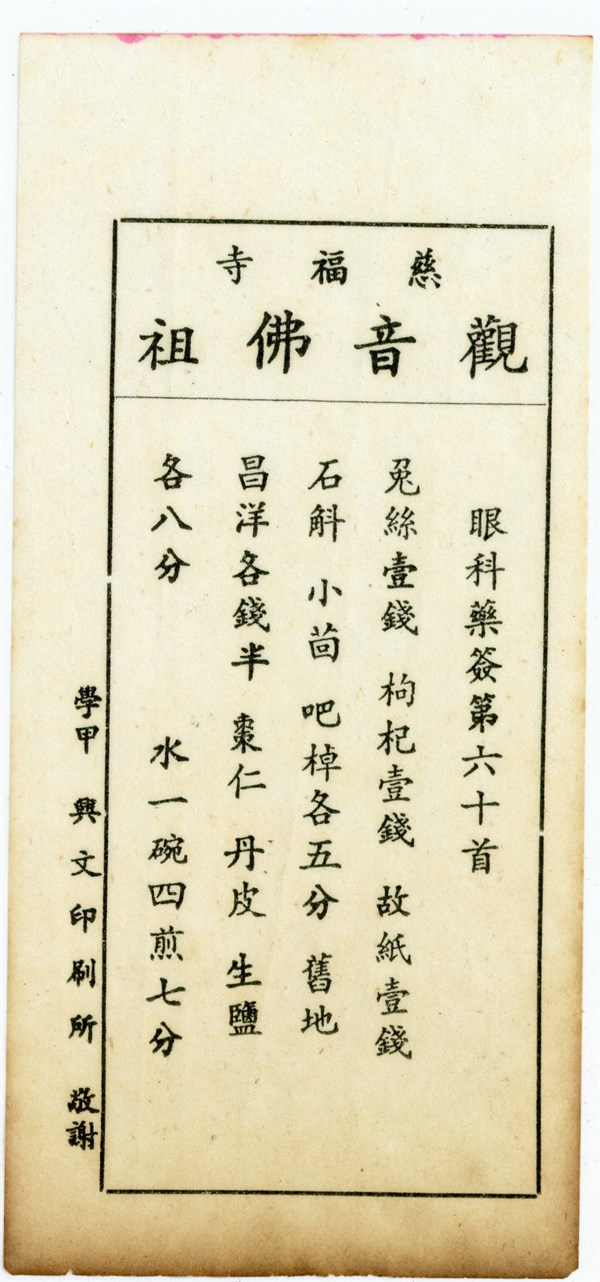 慈福寺
觀音佛祖
眼科藥簽第六十首
兎絲壹錢 枸杞壹錢 故紙壹錢
石斛 小茴 吧棹各五分 舊地
昌洋各錢半 棗仁 丹皮 生鹽
各八分 水一碗四煎七分
學甲 興文印刷所 敬謝